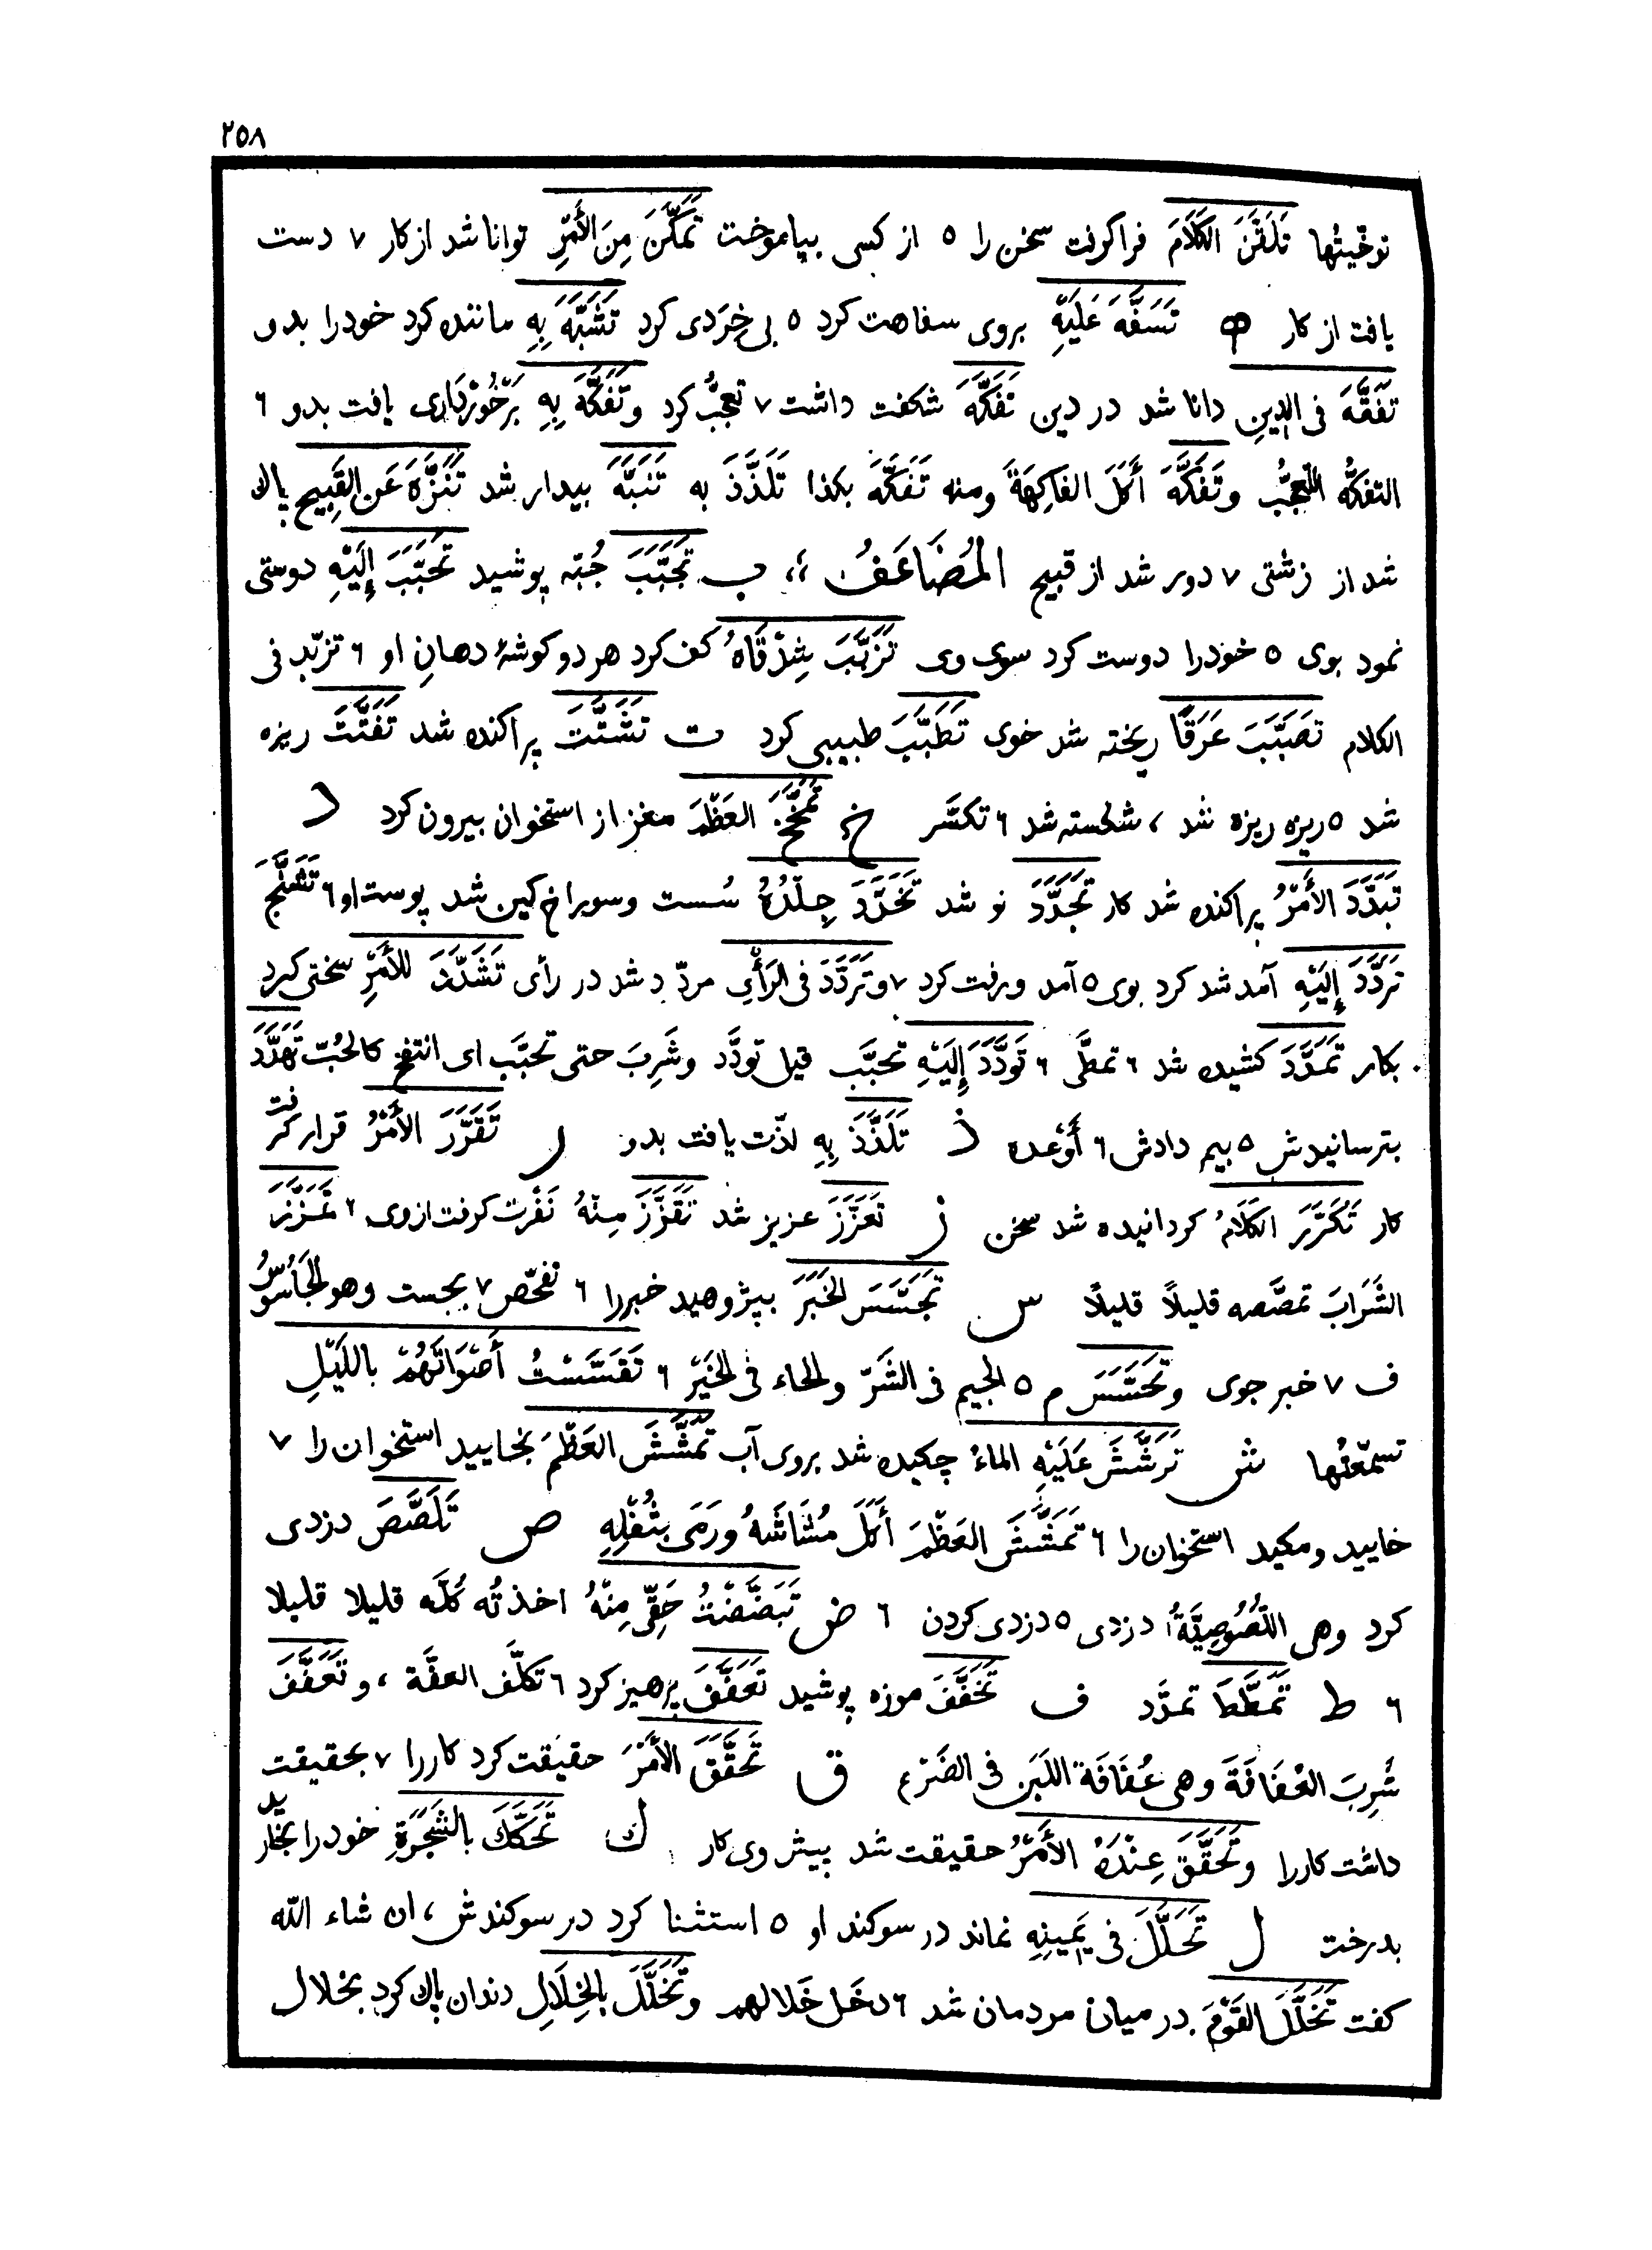 ۲۵۸
توخّیتُها تَلَقَّنَ الكَلَامَ فراگرفت سخن را ٥ از کسی بیاموخت تَمَكَّنَ مِنَ الأَمْرِ توانا شد از کار ٧ دست
یافت از کار ه تَسَفَّهَ عَلَيْهِ بروی سفاهت کرد ٥ بی خِرَدی کرد تَشَبَّهَ بِهِ مانند کرد خود را بدو
تَفَقَّهَ فی الدِینِ دانا شد در دین تَفَكَّهَ شکفت داشت ٧ تعجُّب کرد وَتَفَكَّهَ بِهِ بَرْخُوْرْدَاری یافت بدو ٦
التفكُّه التعجُّب وَتَفَكَّهَ أَكَلَ الفَاكِهَةَ ومنه تَفَكَّهَ بكذا تَلَذَّذَ به تَنَبَّهَ بیدار شد تَنَزَّهَ عَنِ القَبِيحِ پاك
شد از زشتی ٧ دور شد از قبیح المُضَاعَفُ ،، ب تَجَبَّبَ جُبّه پوشید تَحَبَّبَ إِلَيْهِ دوستی
نمود بوی ٥ خود را دوست کرد سوی وی تَزَبَّبَ شِدْقَاهُ کف کرد هر دو کوشهٔ دهانِ او ٦ تزبّد فی
الكلام تَصَبَّبَ عَرَقًا ریخته شد خوی تَطَبَّبَ طبیبی کرد ت تَشَتَّتَ پراکنده شد تَفَتَّتَ ریزه
شد ٥ ریزه ریزه شد ، شکسته شد ٦ تكسَّر خ تَمَخَّخَ العَظْمَ مغز از استخوان بیرون کرد د
تَبَدَّدَ الأَمْرُ پراکنده شد کار تَجَدَّدَ نو شد تَخَدَّدَ جِلْدُهُ سُست وسوراخ کین شد پوست او ٦ تَشَنَّجَ
تَرَدَّدَ إِلَيْهِ آمد شد کرد بوی ٥ آمد ورفت کرد ٧ وَتَرَدَّدَ فی الرَأْيِ مردّد شد در رأی تَشَدَّدَ للأَمْرِ سختی کرد
بکار تَمَدَّدَ کشیده شد ٦ تمطَّی ٦ تَوَدَّدَ إِلَيْهِ تحبَّب قیل تودَّد وشَرِبَ حتی تحبَّب ای انتفخ كالحُبّ تَهَدَّدَ
بترسانیدش ٥ بیم دادش ٦ أَوْعده ذ تَلَذَّذَ بِهِ لذّت یافت بدو ر تَقَرَّرَ الأَمْرُ قرار کرفت
کار تَكَرَّرَ الكَلَامُ کردانیده شد سخن ز تَعَزَّزَ عزیز شد تَقَزَّزَ مِنْهُ نَفْرت کرفت از وی ٦ تَمَزَّزَ
الشَرَابَ تمصَّصه قلیلًا قلیلًا س تَجَسَّسَ الخَبَرَ بپژوهید خبر را ٦ تفحّص ٧ بجست وهو الجَاسُوسُ
ف ٧ خبر جوی وتَحَسَّسَ م ٥ الجیم فی الشَرّ والحاء فی الخَيْرِ ٦ تَقَسَّسْتُ أَصْوَاتَهُمْ باللَيْلِ
تسمّعتُها ش تَرَشَّشَ عَلَيْهِ الماءُ چکیده شد بروی آب تَمَشَّشَ العَظْمَ بخایید استخوان را ٧
خایید ومکید استخوان را ٦ تَمَشَّشَ العَظْمَ أَكَلَ مُشَاشَهُ ورَمَى بِثُفْلِهِ ص تَلَصَّصَ دزدی
کرد وهی اللُّصُوصِيَّةُ دزدی ٥ دزدی کردن ٦ ض تَبَضَّضْتُ حَقِّی مِنْهُ اخذتُه كُلَّه قلیلا قلیلا
٦ ط تَمَطَّطَ تمدَّد ف تَخَفَّفَ موزه پوشید تَعَفَّفَ پرهیز کرد ٦ تكلَّف العفَّة ، وتَعَفَّفَ
شَرِبَ العُفَافَةَ وهی عُفَافَة اللَبَن فی الضَرْع ق تَحَقَّقَ الأَمْرَ حقیقت کرد کار را ٧ بحقیقت
داشت کار را وتَحَقَّقَ عِنْدَهُ الأَمْرُ حقیقت شد پیش وی کار ك تَحَكَّكَ بالشَجَرَةِ خود را بخارید
بدرخت ل تَحَلَّلَ فی یَمِینِهِ نماند در سوکند او ٥ استثنا کرد در سوکندش ، ان شاء الله
کفت تَخَلَّلَ القَوْمَ در میان مردمان شد ٦ دخَل خَلالهم وتَخَلَّلَ بالخِلَالِ دندان پاك کرد بخلال